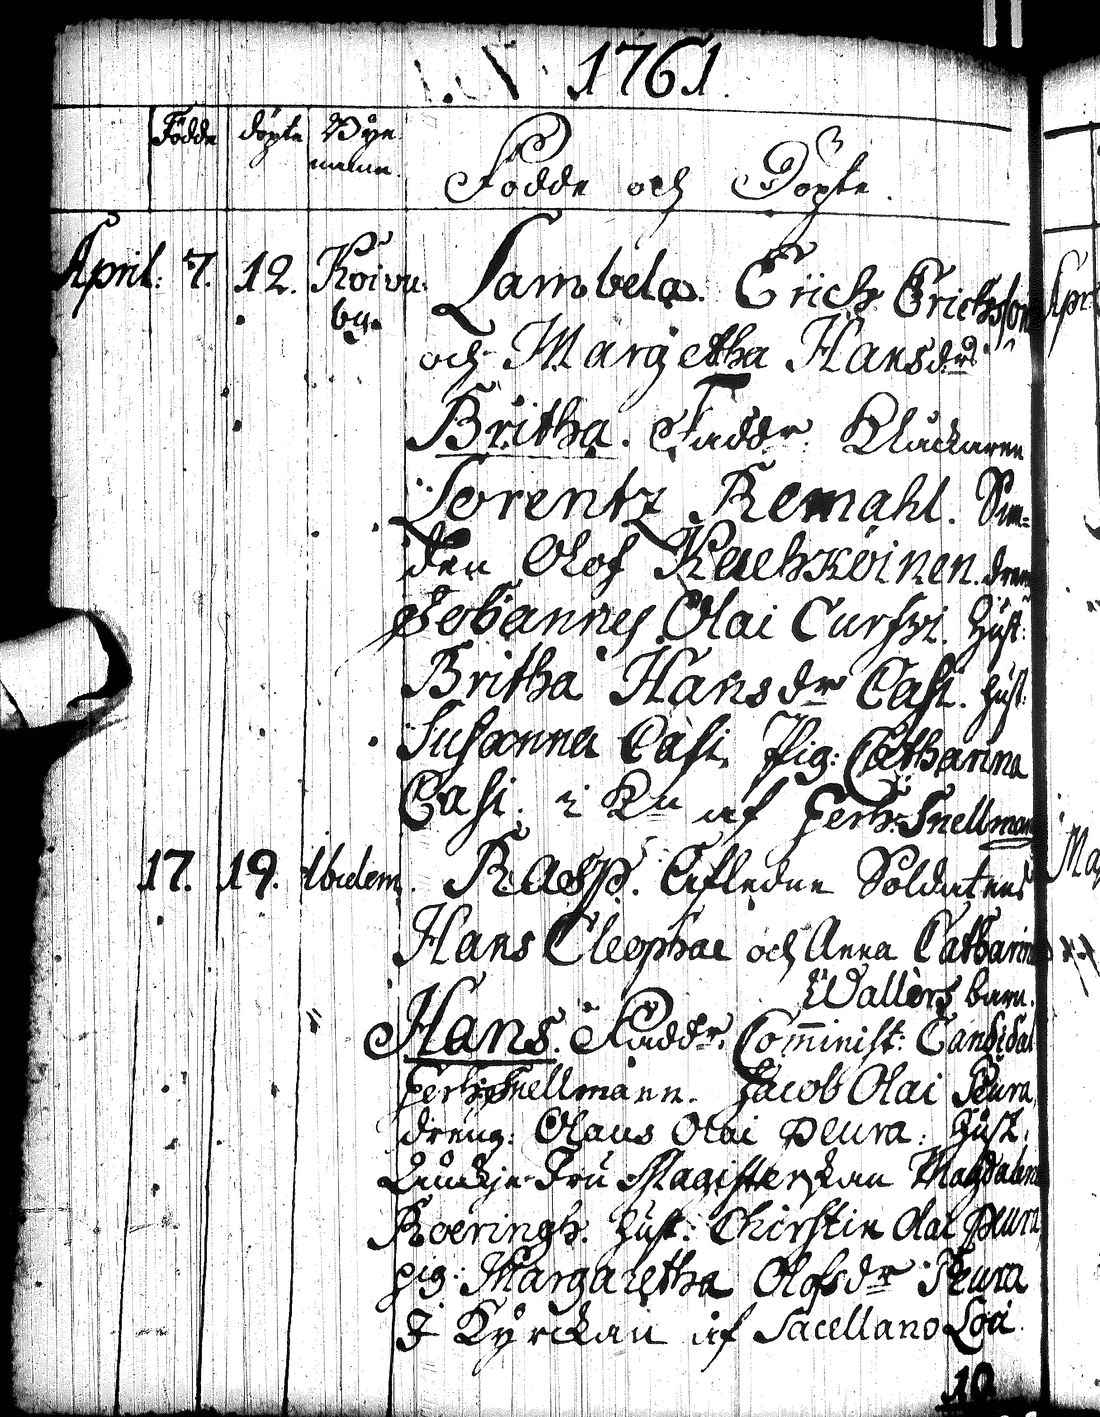 1761.
Födde döpte Byenamn.
Födde och Döpte.
April: 7. 12. Koivu: Lambela. Erich Erichsson
by. och Margetha Hansdr
Britha. Faddr. Kluckaren
Lorentz Remahl.
den Olof Keuhkoinen. dren
Johannes Olai Curssi. Hust:
Britha Hansdr Casi. hust:
Susanna Casi. Pig: Catharina
Casi. i Kn af Herr Snellman
17. 19. Ibidem. Rasp. Afledne Soldatens
Hans Cleophae och Anna Catharin
Wallers barn.
Hans. Faddr. Comminist: Candidat
Herr Snellmann. Jacob Olai Peura,
dreng: Olaus Olai Peura. Hust.
Enckje Fru Magisterskan Magdalena
Roeringh. Hust: Chirstin Olai Peura,
pig: Margaretha Olofsdr Peura
I Kyrckan af Sacellano Loci.
10